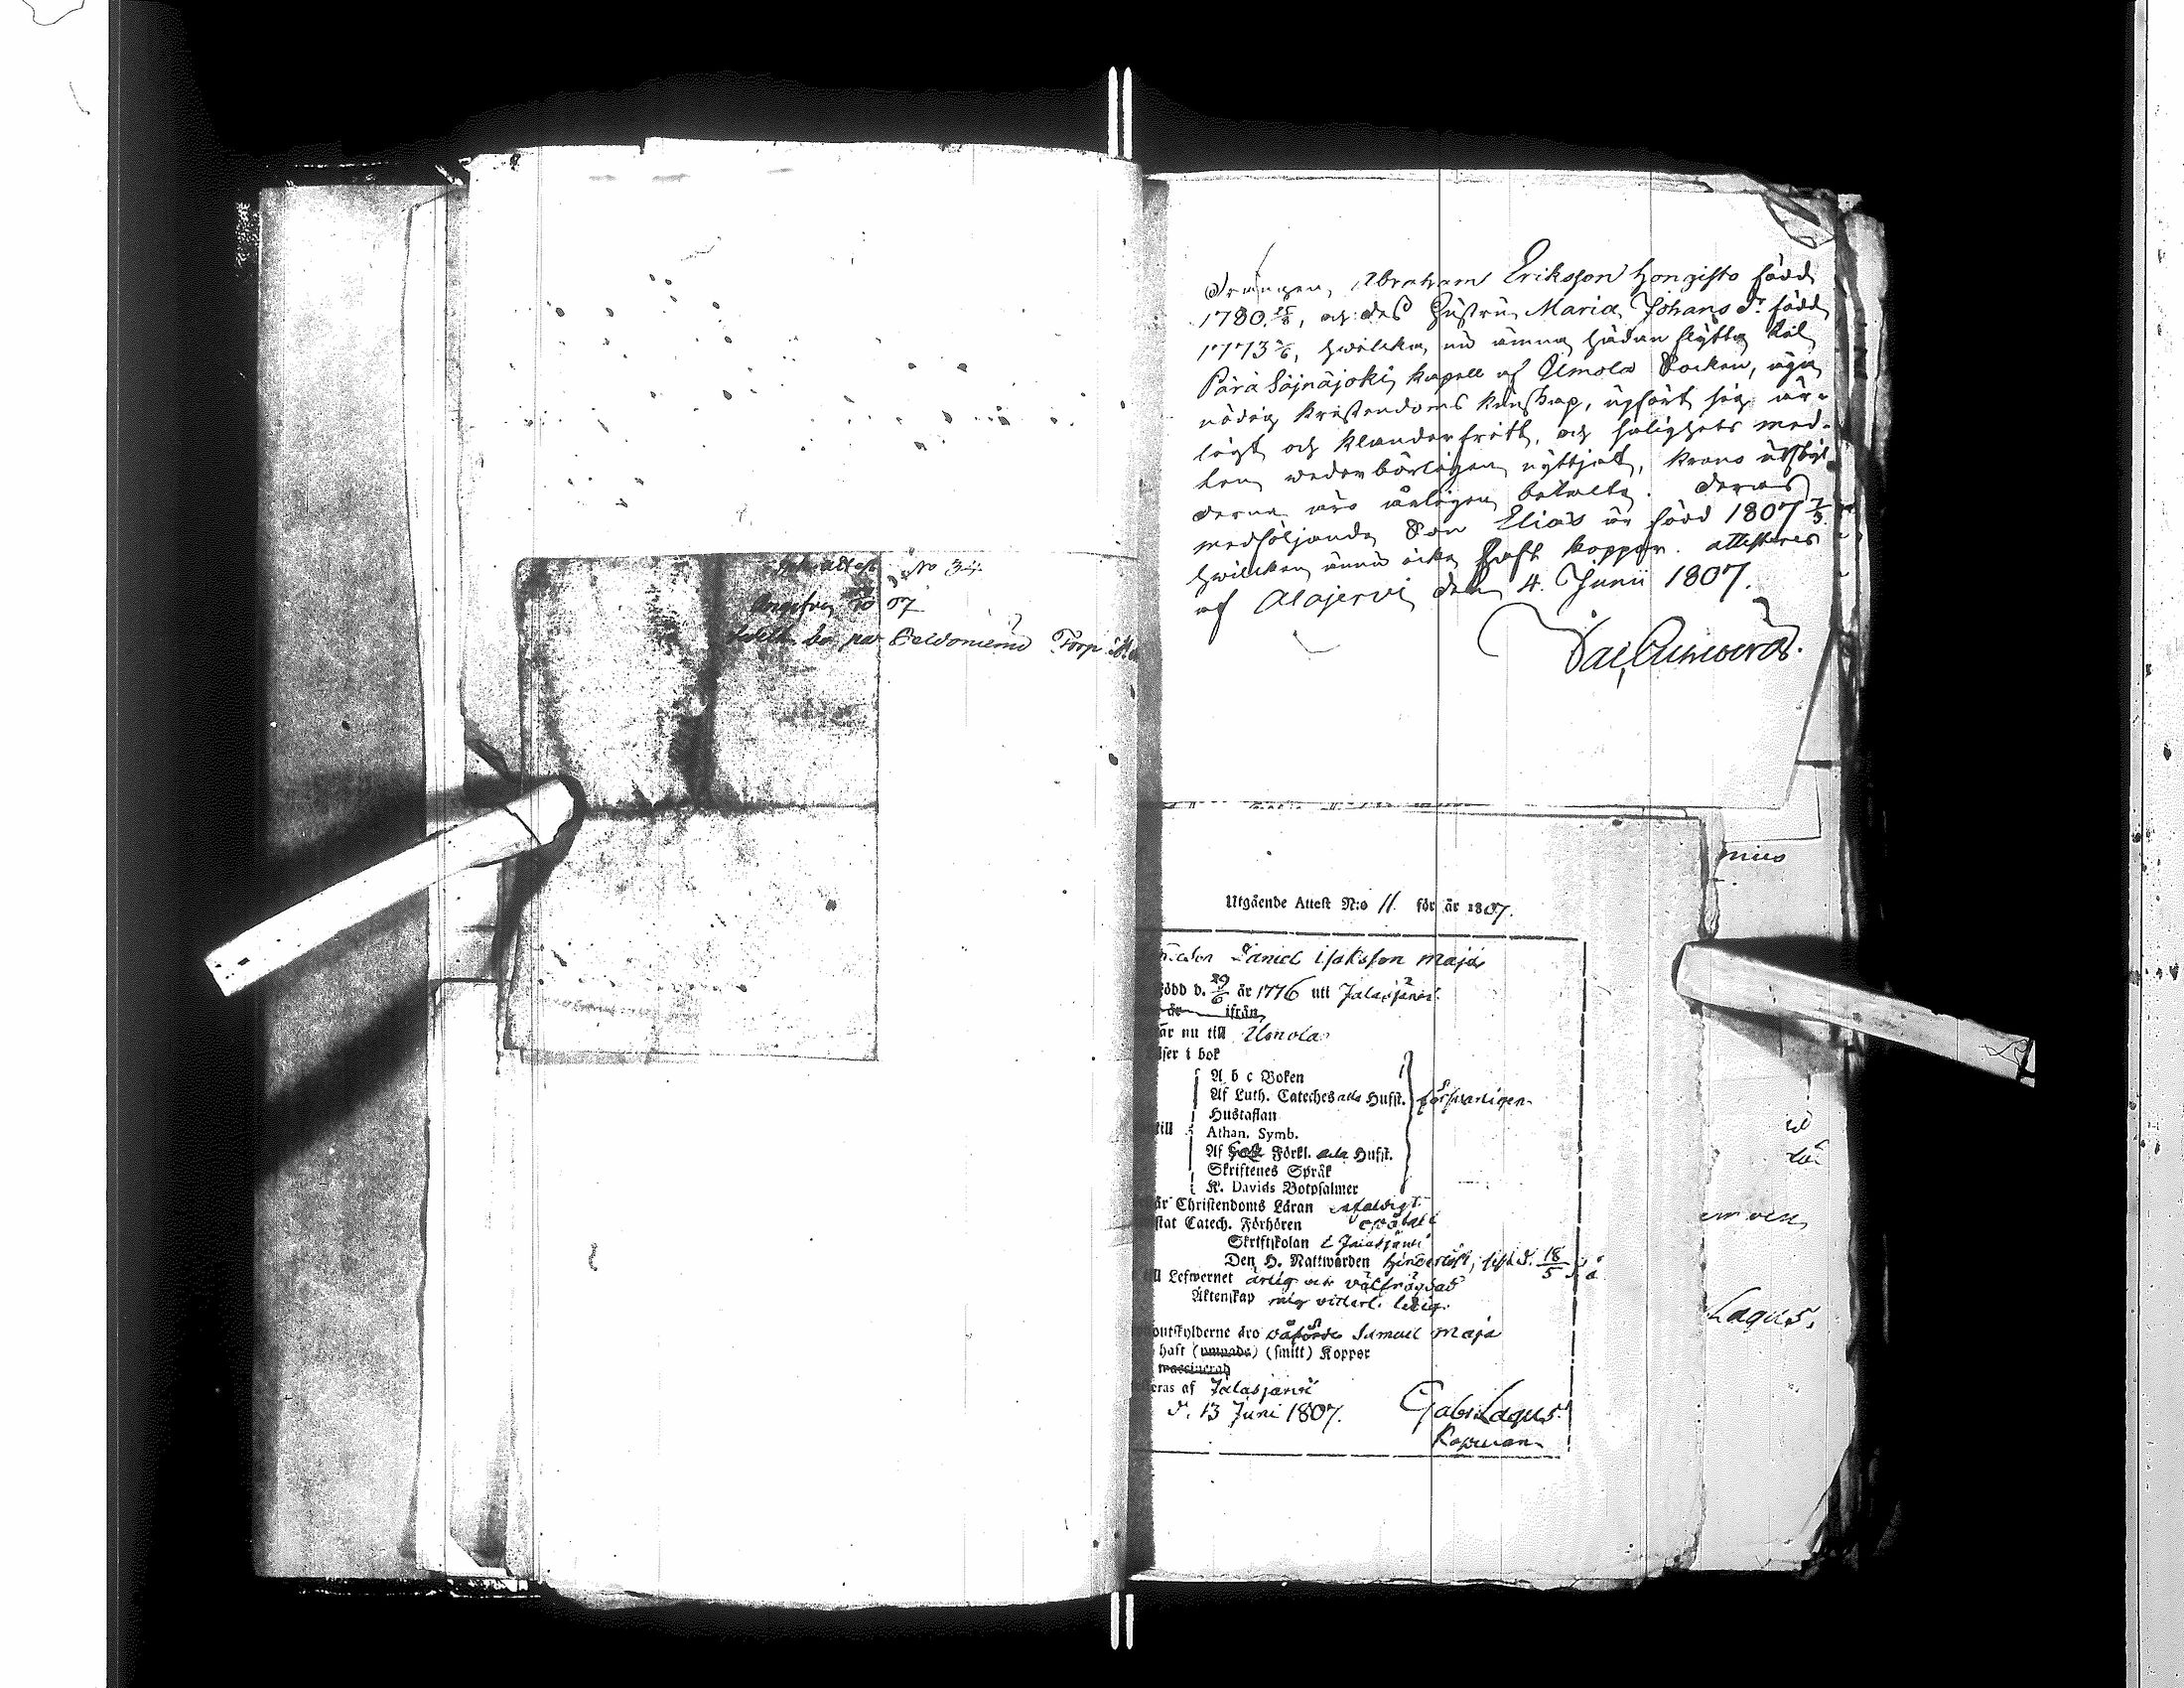 No 34.
07
bo på Torp
Drängen Abraham Eriksson Hongisto född
1780, och des Hustru Maria Johans Dr född
1773, hwilka nu ämna hädan flytta till
Pärä Säjnäjoki kapell af Ilmola Socken, äga
nödig kristendoms kunskap, upfört sig är-
ligt och klanderfritt, och salighets med-
len wederbörligen nyttjat, krono utskyl-
derna äro årligen betalte. Deras
medföljande Son Elias är född 1807 7/3.
hwilken ännu icke haft koppor. attesteras
af Alajerwi den 4. Junii 1807.
nius
Utgående Attest N:o 11. för år 1807.
Daniel Isaksson Maja
född d. 29/6 år 1776 uti Jalasjärvi
år ifrån
är nu till Ilmola
ser i bok
A b c Boken
Af Luth. Cateches alla Hufst. försvarligen
Hustaflan
till
Athan. Symb.
Af Förkl. alla Hufst.
Skriftenes Språk
K. Davids Botpsalmer
är Christendoms Läran enfaldigt
stat Catech. Förhören
Skriftskolan i Jalasjärvi
Den H. Nattwarden hinderlöst, sist d. 18/5
ll Lefwernet ärlig och välfrägdad
Äktenskap mig vitterl. ledig.
outskylderne äro Samuel Maja
haft (smitt) Koppor
eras af Jalasjärvi
d. 13 Juni 1807. Gabr. Lagus
Kapellan
Lagus.